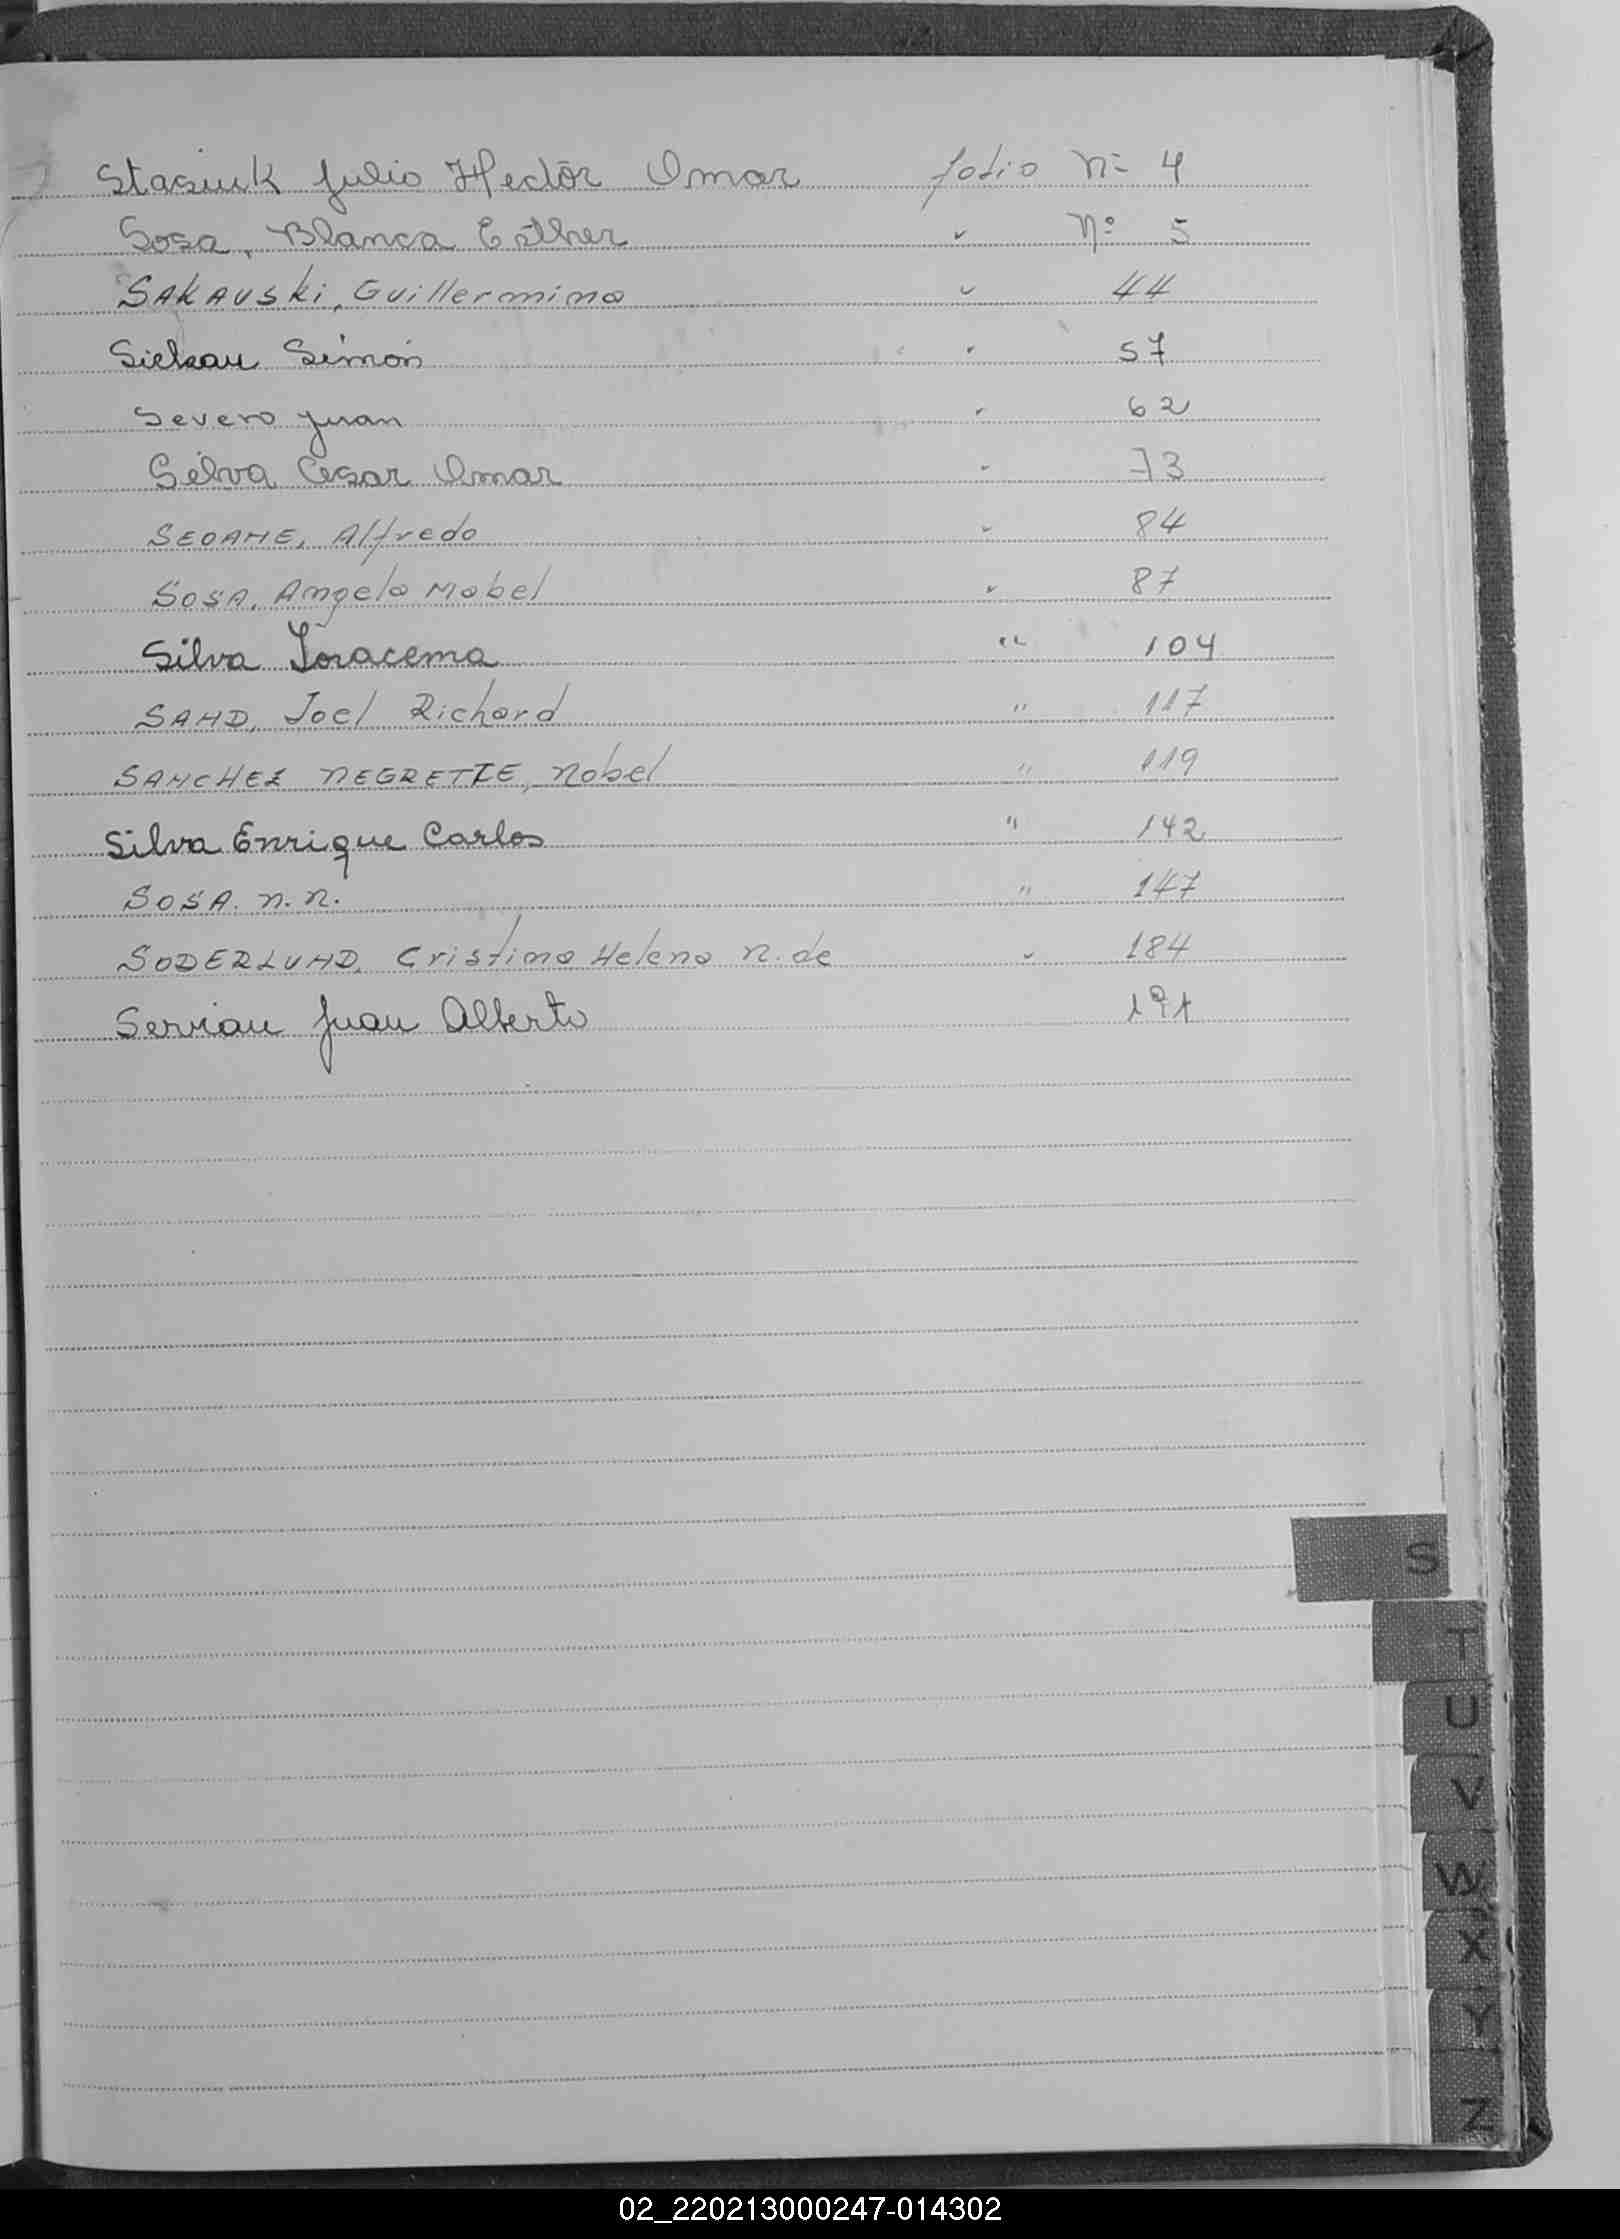 Stasiuk Julio Hector Omar folio Nº 4
Sosa, Blanca Esther " Nº 5
SAKAUSKi, Guillermina " 44
Simón " 57
Severo Juan " 62
Silva Cesar Omar " 73
SEOANE, Alfredo " 84
SOSA, Angela Mabel " 87
Silva Joracema " 104
SAND, Joel Richard " 117
SANCHEZ NEGRETTE, Nobel " 119
Silva Enrique Carlos " 142
SOSA. N.N. " 147
SODERLUND, Cristina Helena N. de " 184
Servian Juan Alberto 191
S
T
U
V
W
X
Y
Z
02_220213000247-014302